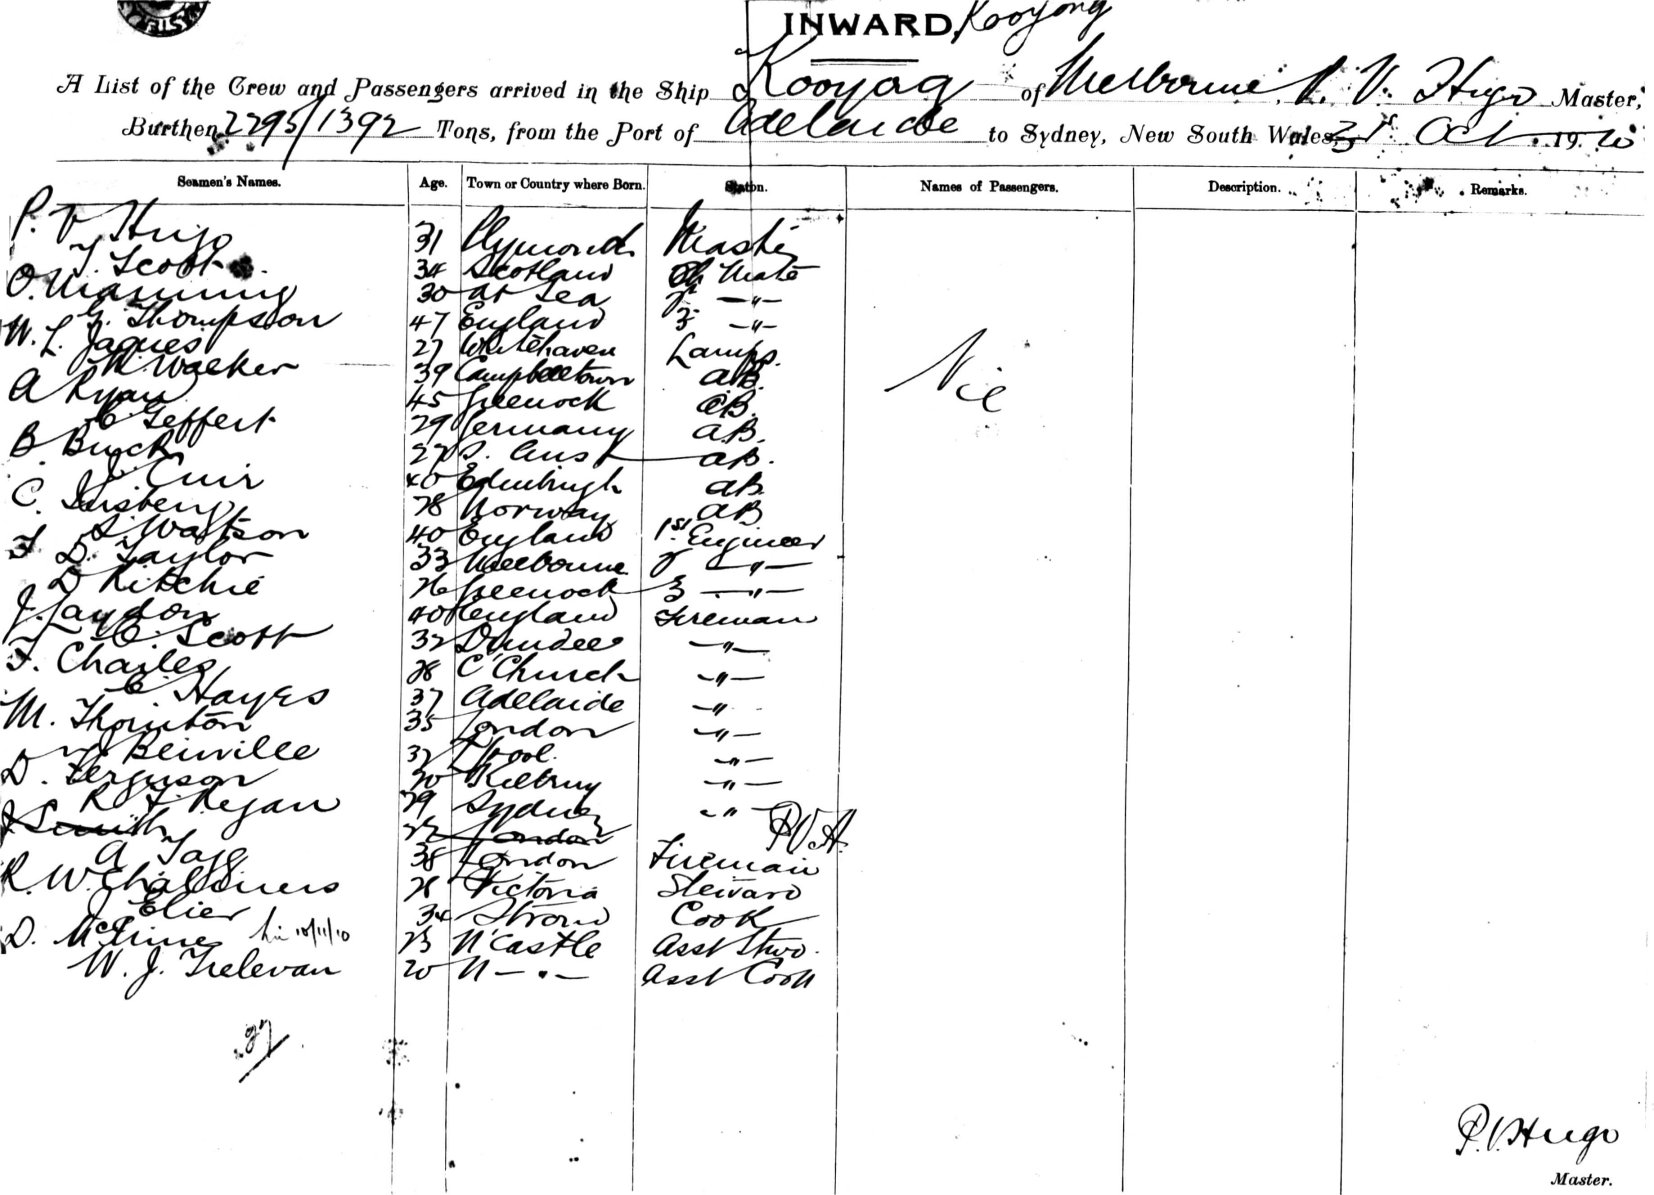 INWARD, Kooyong
A List of the Crew and Passengers arrived in the Ship Kooyong of Melbourne, P. V. Hugo Master,
Burthen 2295/1392 Tons, from the Port of Adelaide to Sydney, New South Wales, 31st Oct. 1910
Seamen's Names. Age. Town or Country where Born. Station. Names of Passengers. Description. Remarks.
P. V Hugo 31 Plymouth Master
T. Scott 34 Scotland Ch Mate
O. Manning 30 at Sea 2d —"—
G. Thompson 47 England 3 —"—
W. L. Jaques 27 Whitehaven Lamps.
W. Walker 39 Campbeltown AB.
A Ryan 45 Greenock AB.
C. Geffert 29 Germany AB.
B Buck 27 S. Aust AB.
J. Cuir 40 Edinburgh AB
C. 28 Norway AB
S. Watson 40 England 1st Engineer
F D. Taylor 33 Melbourne 2 —"—
D Ritchie 26 Greenock 3 —"—
J. Laydon 40 England Fireman
C. Scott 32 Dundee —"—
F. Charles 28 C'Church —"—
C. Hayes 37 Adelaide —"—
M. Thornton 35 London —"—
J Beinville 32 L'pool —"—
D. Ferguson 30 —"—
R. F. Regan 29 Sydney —"—
J Smith 22 London
A 38 London Fireman
R. W. Chalmers 28 Victoria Steward
J. Elier 34 Cook
D. 10/11/10 23 N'Castle Asst Stwd.
W. J. Trelevan 20 N — " — Asst Cook
Nil
27
P. V Hugo
Master.